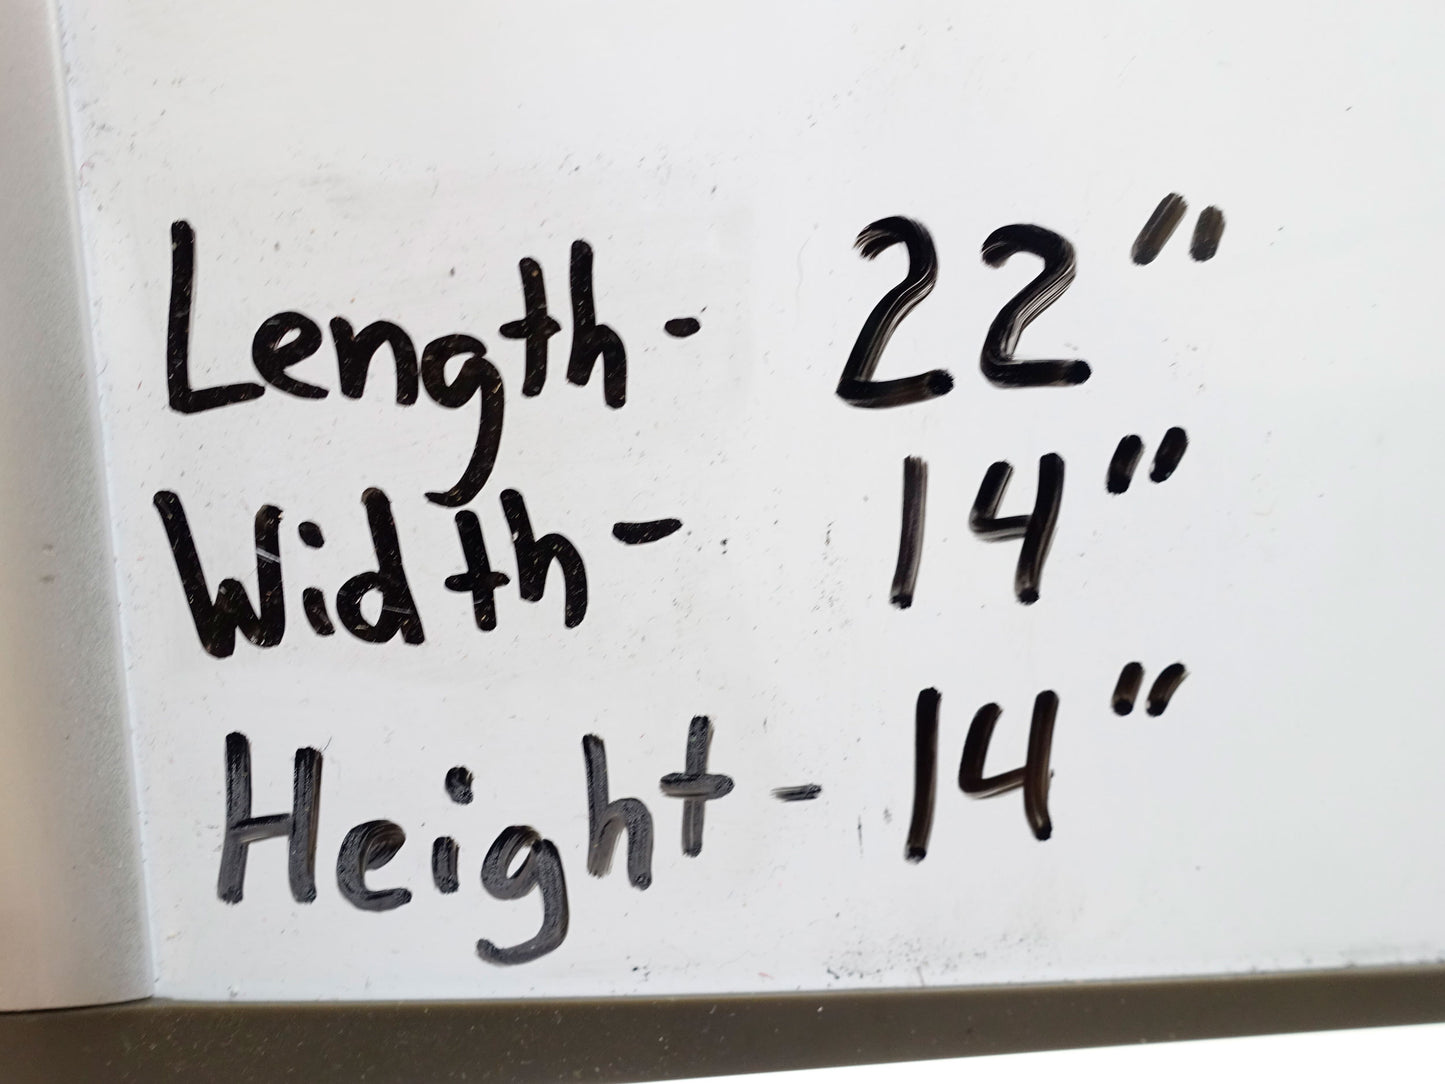 Length- 22"
Width- 14"
Height- 14"